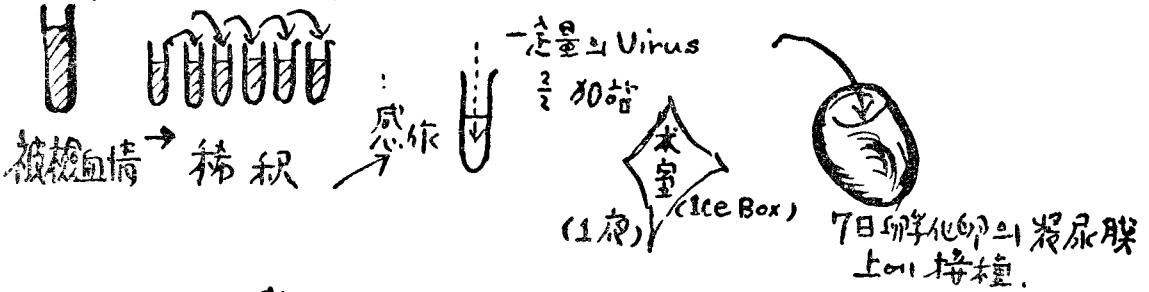 被檢血清
稀釈
感作
一定量의 Virus
를 加함
氷室
(1夜)
(Ice Box)
7日孵化卵의 漿尿膜
上에 接種.